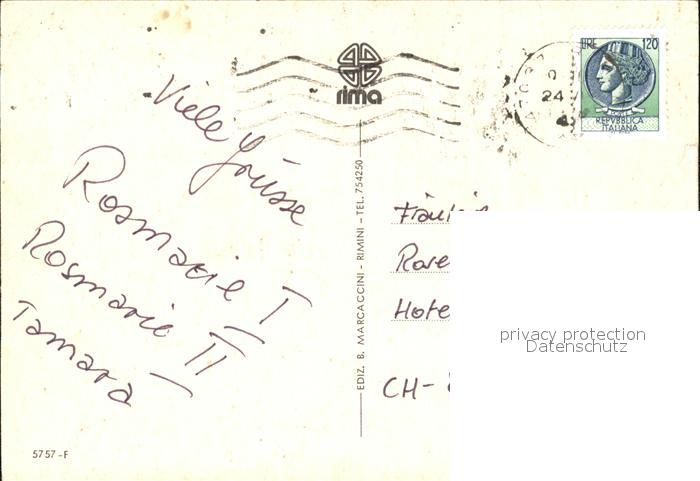 Viele Grüsse
Rosmarie I
Rosmarie II
Tamara
5757-F
rima
EDIZ. B. MARCACCINI - RIMINI - TEL. 754250
LIRE 120
REPVBBLICA
ITALIANA
24
Rose
Hote
CH-
privacy protection
Datenschutz